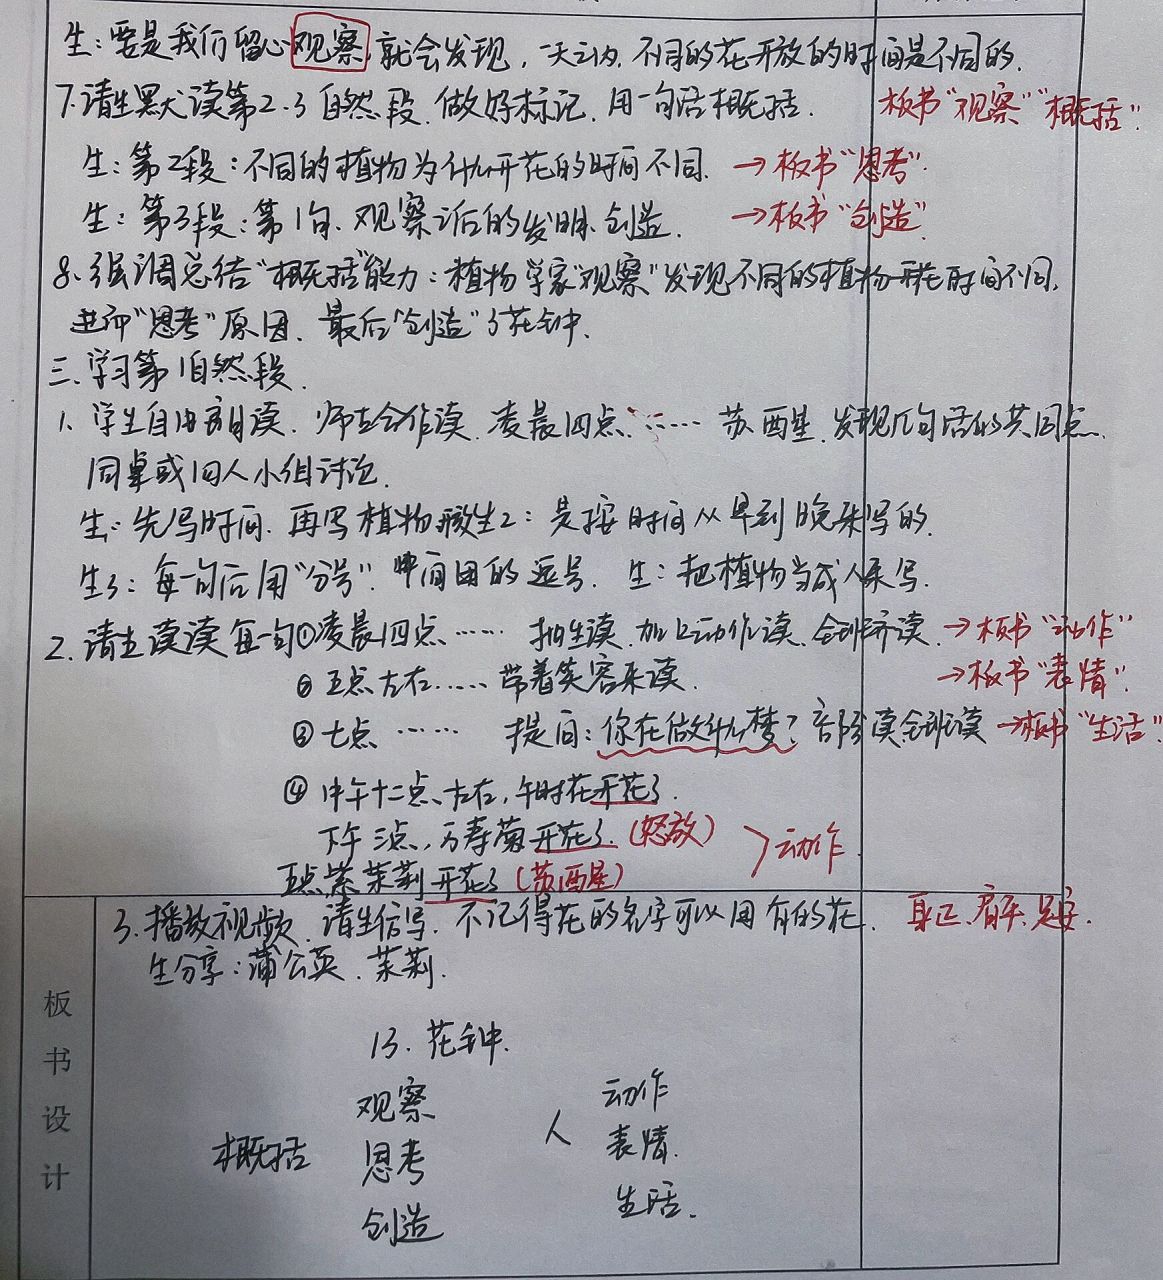 生:要是我们留心观察,就会发现,一天之内,不同的花开放的时间是不同的.
7.请生默读第2.3自然段.做好标记.用一句话概括. 板书“观察”“概括”.
生:第2段:不同的植物为什么开花的时间不同. →板书“思考”.
生:第3段:第1句.观察之后的发明.创造. →板书“创造”.
8.强调总结“概括”能力:植物学家“观察”发现不同的植物开花时间不同,
进而“思考”原因.最后“创造”了花钟.
三.学习第1自然段.
1、学生自由朗读.师生合作读.凌晨四点…… 苏醒.发现几句话的共同点.
同桌或四人小组讨论.
生:先写时间.再写植物 生2:是按时间从早到晚来写的.
生3:每一句后用“分号”.中间用的逗号. 生:把植物当成人来写.
2.请生读读每一句①凌晨四点…… 抽生读.加上动作读.全班齐读 →板书“动作”
②五点左右…… 带着笑容来读. →板书“表情”.
③七点…… 提问:你在做什么梦?部分读全班读 →板书“生活”.
④中午十二点左右,午时花开花了.
下午三点,万寿菊开花了.(怒放) 〉动作.
五点紫茉莉开花了(苏醒)
3.播放视频.请生仿写.不记得花的名字可以用有的花. 身正.肩平.足安.
生分享:蒲公英.茉莉.
板书设计
13.花钟.
观察 动作
概括 思考 人 表情.
创造 生活.